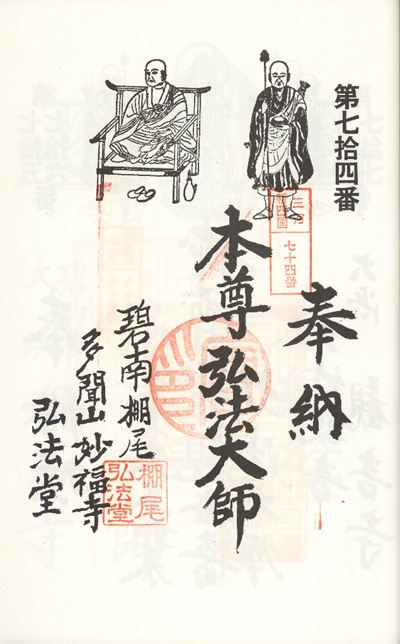 第七拾四番
奉納
三河
新四国
七十四番
本尊弘法大師
碧南棚尾
多聞山妙福寺
弘法堂
棚尾
弘法堂